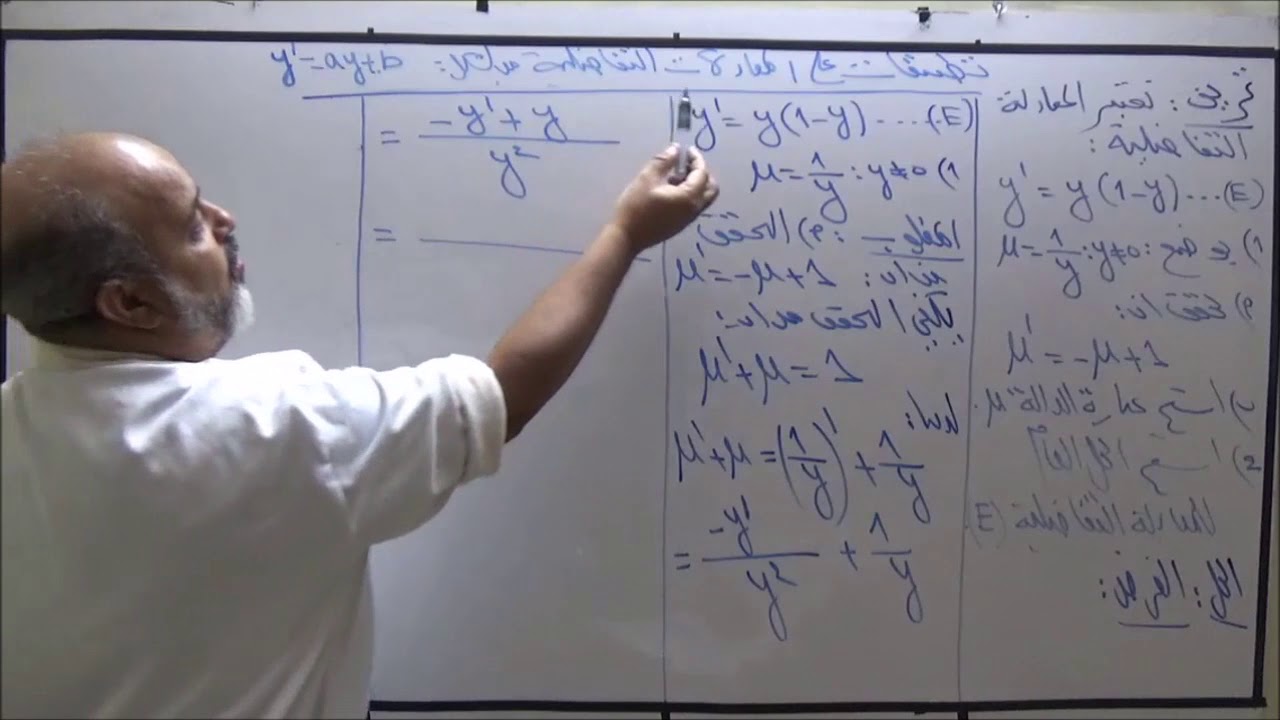 تطبيقات على المعادلات التفاضلية من الشكل: y' = ay + b
تمرين: نعتبر المعادلة
التفاضلية:
y' = y(1-y) ... (E)
1) بوضع: μ = 1/y : y ≠ 0
م) تحقق ان:
μ' = -μ + 1
ب) استنتج عبارة الدالة μ.
2) استنتج الحل العام
للمعادلة التفاضلية (E).
الحل: الفرض:
y' = y(1-y) .... (E)
1) μ = 1/y : y ≠ 0
المطلوب: م) التحقق
من ان: μ' = -μ + 1
يكفي التحقق من ان:
μ' + μ = 1
لدينا:
μ' + μ = (1/y)' + 1/y
= -y'/y² + 1/y
= (-y' + y)/y²
=